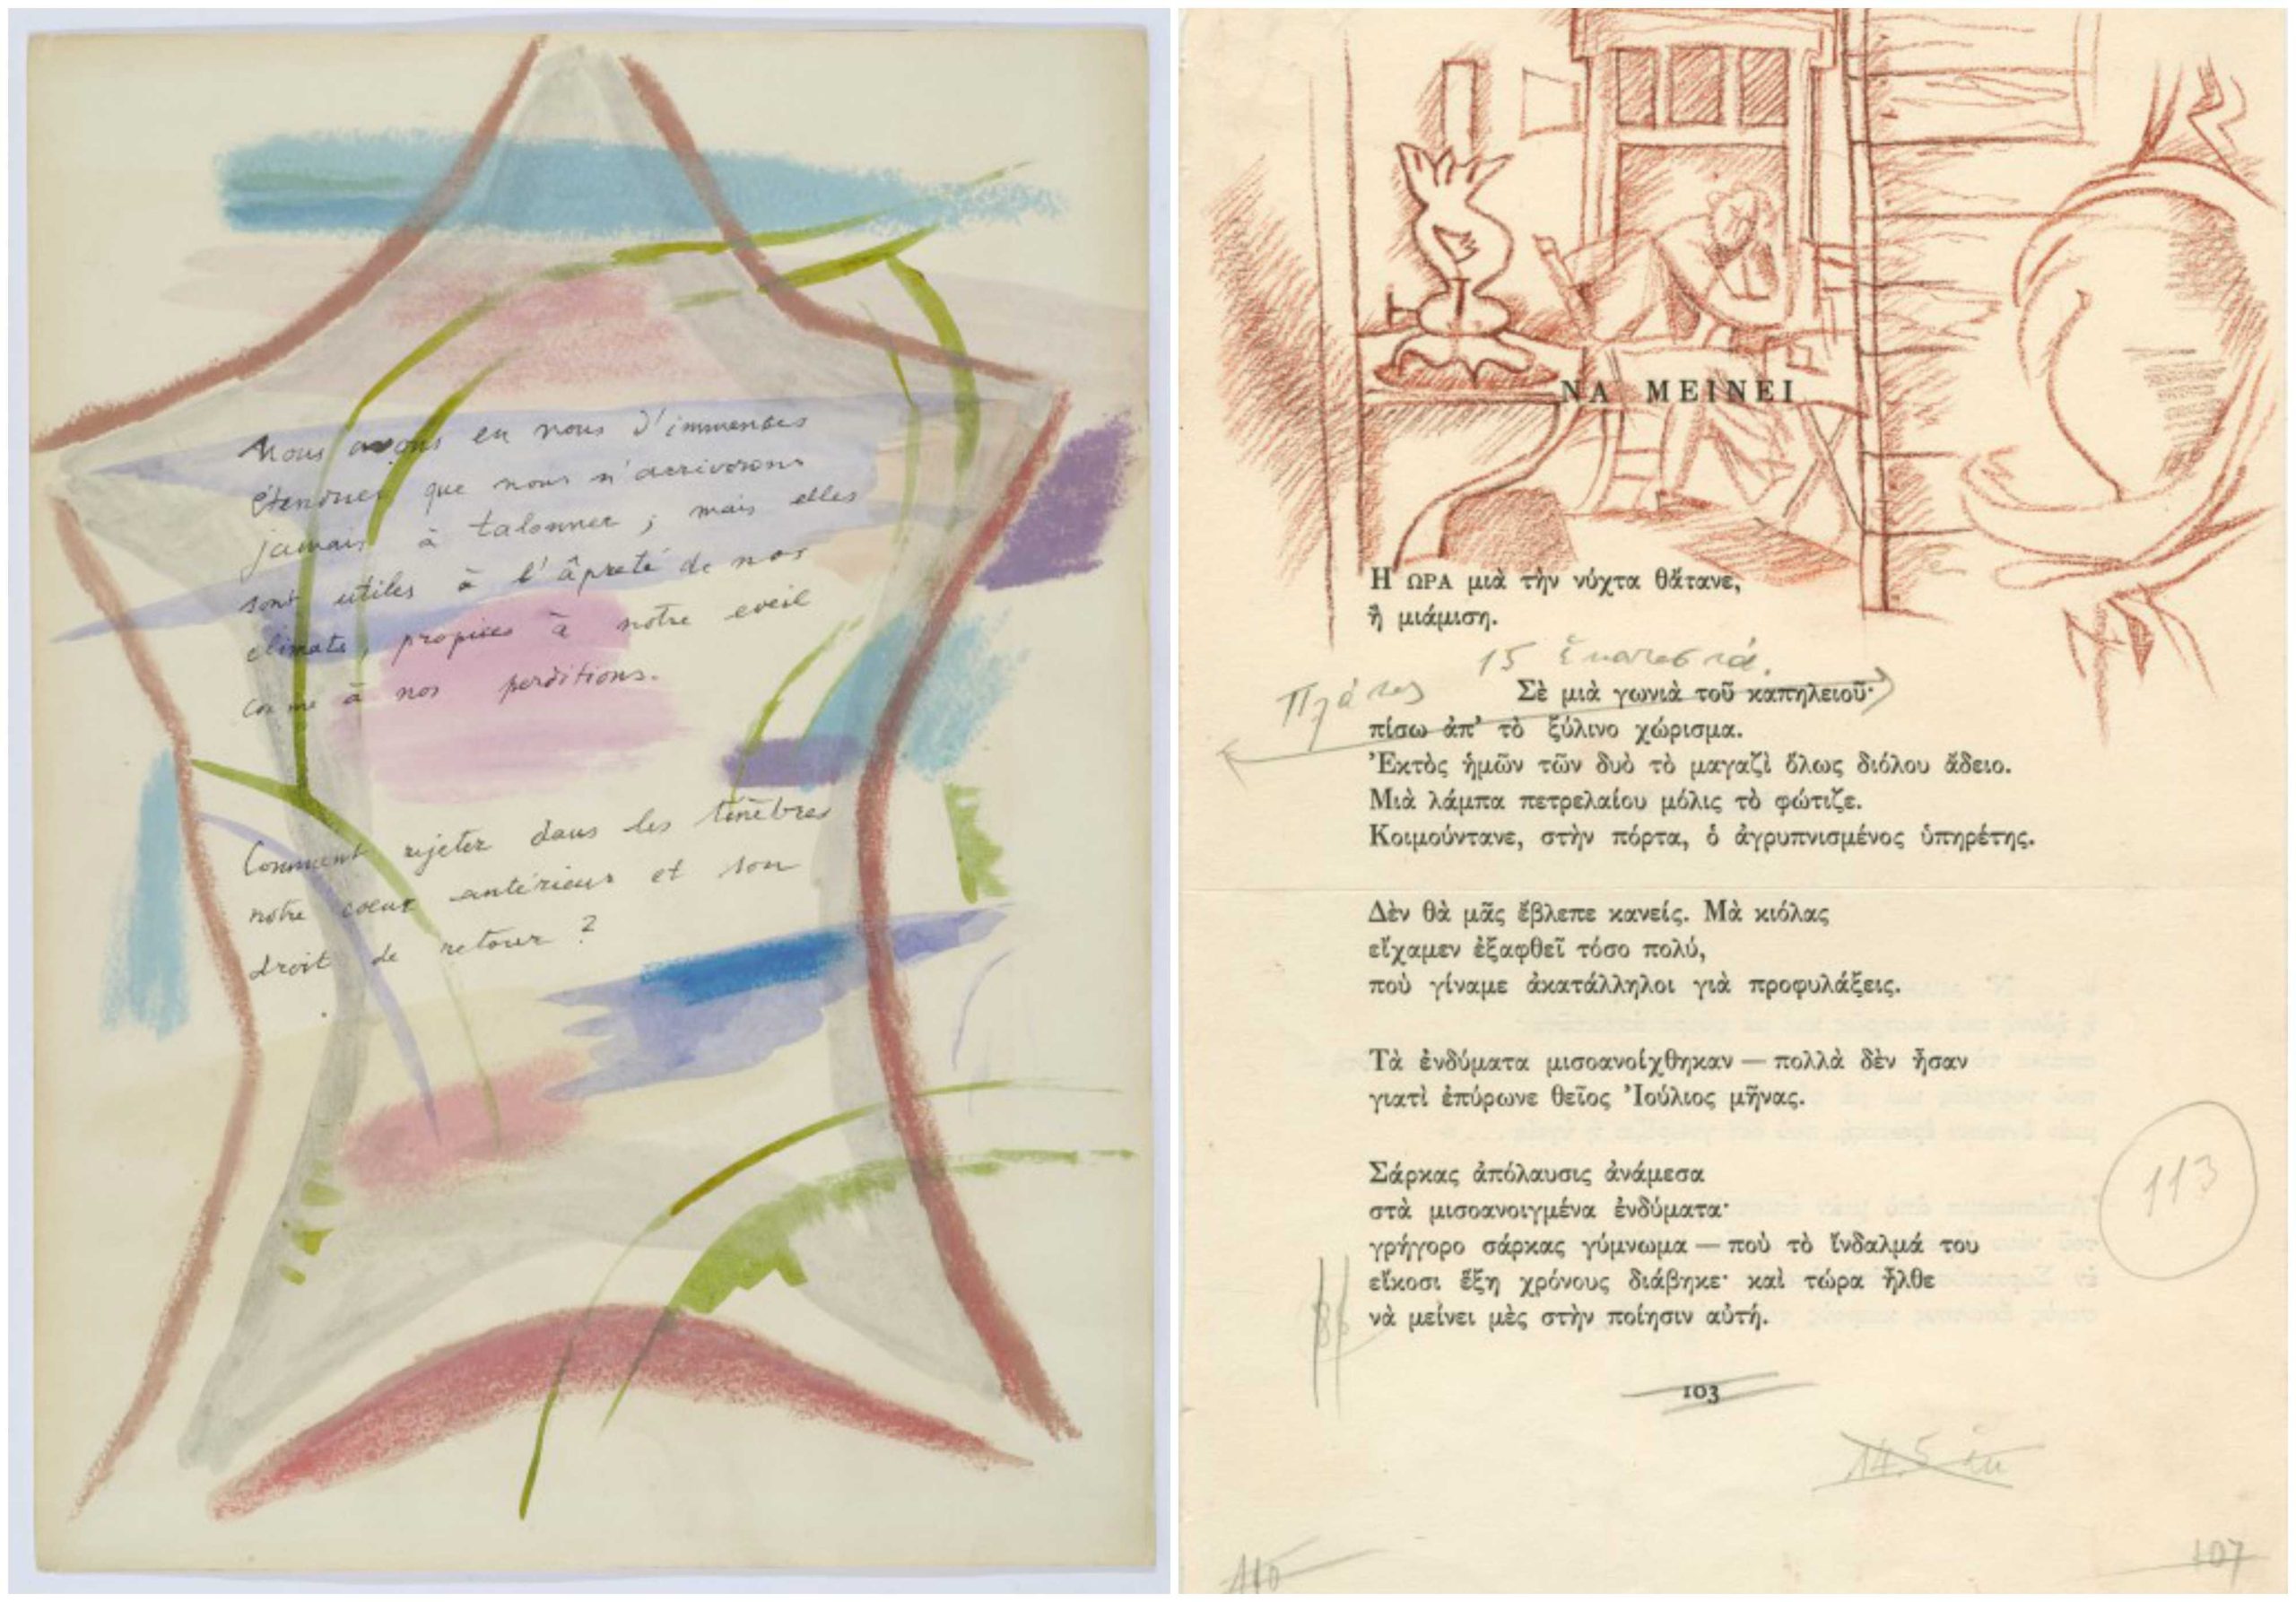 Nous avons en nous d'immenses
étendues que nous n'arriverons
jamais à talonner ; mais elles
sont utiles à l'âpreté de nos
climats, propices à notre eveil
comme à nos perditions.
Comment rejeter dans les ténèbres
notre coeur antérieur et son
droit de retour ?
ΝΑ ΜΕΙΝΕΙ
Η ΩΡΑ μιὰ τὴν νύχτα θἄτανε,
ἢ μιάμιση.
15 ἑκατοστά.
Πλάτος
Σὲ μιὰ γωνιὰ τοῦ καπηλειοῦ·
πίσω ἀπ' τὸ ξύλινο χώρισμα.
Ἐκτὸς ἡμῶν τῶν δυὸ τὸ μαγαζὶ ὅλως διόλου ἄδειο.
Μιὰ λάμπα πετρελαίου μόλις τὸ φώτιζε.
Κοιμούντανε, στὴν πόρτα, ὁ ἀγρυπνισμένος ὑπηρέτης.
Δὲν θὰ μᾶς ἔβλεπε κανείς. Μὰ κιόλας
εἴχαμεν ἐξαφθεῖ τόσο πολύ,
ποὺ γίναμε ἀκατάλληλοι γιὰ προφυλάξεις.
Τὰ ἐνδύματα μισοανοίχθηκαν — πολλὰ δὲν ἦσαν
γιατὶ ἐπύρωνε θεῖος Ἰούλιος μῆνας.
Σάρκας ἀπόλαυσις ἀνάμεσα
στὰ μισοανοιγμένα ἐνδύματα·
γρήγορο σάρκας γύμνωμα — ποὺ τὸ ἴνδαλμά του
εἴκοσι ἕξη χρόνους διάβηκε· καὶ τώρα ἦλθε
νὰ μείνει μὲς στὴν ποίησιν αὐτή.
113
103
14.5
110
107